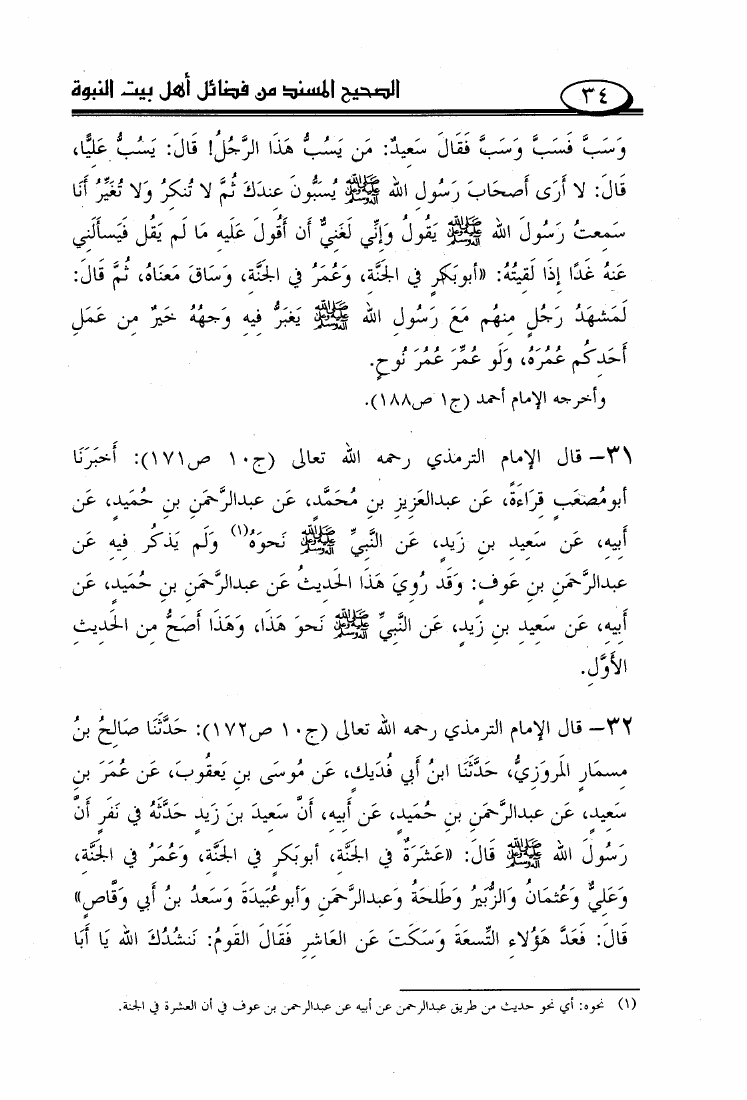 ٣٤
الصحيح المسند من فضائل أهل بيت النبوة
وَسَبَّ فَسَبَّ وَسَبَّ فَقَالَ سَعِيدٌ: مَن يَسُبُّ هَذَا الرَّجُلُ! قَالَ: يَسُبُّ عَلِيًّا،
قَالَ: لا أَرَى أَصحَابَ رَسُولِ الله ﷺ يُسَبُّونَ عِندَكَ ثُمَّ لا تُنكِرُ وَلا تُغَيِّرُ أَنَا
سَمِعتُ رَسُولَ الله ﷺ يَقُولُ وَإِنِّي لَغَنِيٌّ أَن أَقُولَ عَلَيهِ مَا لَم يَقُل فَيَسأَلَنِي
عَنهُ غَدًا إِذَا لَقِيتُهُ: «أَبوبَكرٍ في الجَنَّة، وَعُمَرُ في الجَنَّة، وَسَاقَ مَعنَاهُ، ثُمَّ قَالَ:
لَمَشهَدُ رَجُلٍ مِنهُم مَعَ رَسُولِ الله ﷺ يَغبَرُّ فِيهِ وَجهُهُ خَيرٌ مِن عَمَلِ
أَحَدِكُم عُمُرَهُ، وَلَو عُمِّرَ عُمُرَ نُوحٍ.
وأخرجه الإمام أحمد (ج١ ص١٨٨).
٣١– قال الإمام الترمذي رحمه الله تعالى (ج١٠ ص١٧١): أَخبَرَنَا
أبومُصعَبٍ قِرَاءَةً، عَن عبدالعَزِيزِ بنِ مُحَمَّدٍ، عَن عبدالرَّحمَنِ بنِ حُمَيدٍ، عَن
أَبِيهِ، عَن سَعِيدِ بنِ زَيدٍ، عَن النَّبِيِّ ﷺ نَحوَهُ(١) وَلَم يَذكُر فِيهِ عَن
عبدالرَّحمَنِ بنِ عَوفٍ: وَقَد رُوِيَ هَذَا الحَدِيثُ عَن عبدالرَّحمَنِ بنِ حُمَيدٍ، عَن
أَبِيهِ، عَن سَعِيدِ بنِ زَيدٍ، عَن النَّبِيِّ ﷺ نَحوَ هَذَا، وَهَذَا أَصَحُّ مِن الحَدِيثِ
الأَوَّلِ.
٣٢– قال الإمام الترمذي رحمه الله تعالى (ج١٠ ص١٧٢): حَدَّثَنَا صَالِحُ بنُ
مِسمَارٍ المَروَزِيُّ، حَدَّثَنَا ابنُ أَبي فُدَيكٍ، عَن مُوسَى بنِ يَعقُوبَ، عَن عُمَرَ بنِ
سَعِيدٍ، عَن عبدالرَّحمَنِ بنِ حُمَيدٍ، عَن أَبِيهِ، أَنَّ سَعِيدَ بنَ زَيدٍ حَدَّثَهُ في نَفَرٍ أَنَّ
رَسُولَ الله ﷺ قَالَ: «عَشَرَةٌ في الجَنَّة، أبوبَكرٍ في الجَنَّة، وَعُمَرُ في الجَنَّة،
وَعَلِيٌّ وَعُثمَانُ وَالزُّبَيرُ وَطَلحَةُ وَعبدالرَّحمَنِ وَأبوعُبَيدَةَ وَسَعدُ بنُ أَبي وَقَّاصٍ»
قَالَ: فَعَدَّ هَؤُلاءِ التِّسعَةَ وَسَكَتَ عَن العَاشِرِ فَقَالَ القَومُ: نَنشُدُكَ الله يَا أَبَا
(١) نحوه: أي نحو حديث من طريق عبدالرحمن عن أبيه عن عبدالرحمن بن عوف في أن العشرة في الجنة.